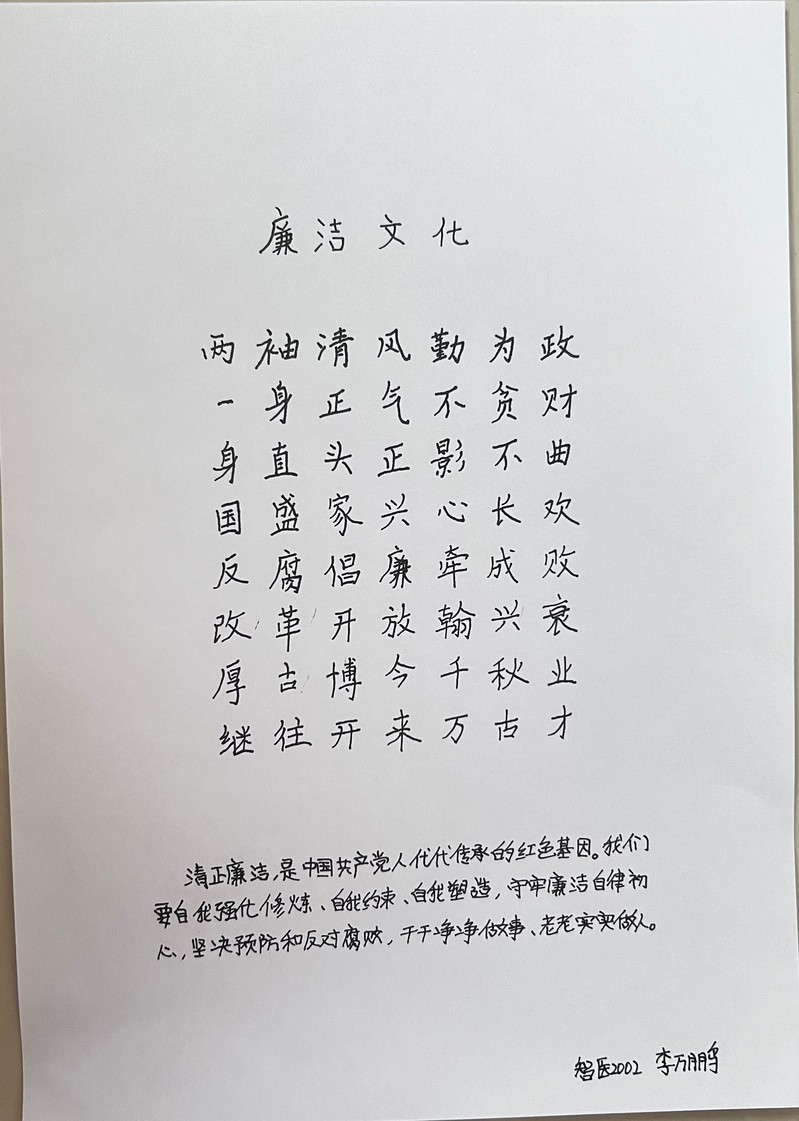 廉洁文化
两袖清风勤为政
一身正气不贫财
身直头正影不曲
国盛家兴心长欢
反腐倡廉牵成败
改革开放翰兴衰
厚古博今千秋业
继往开来万古才
清正廉洁,是中国共产党人代代传承的红色基因。我们
要自我强化修炼、自我约束、自我塑造,守牢廉洁自律初
心,坚决预防和反对腐败,干干净净做事、老老实实做人。
智医2002 李万鹏